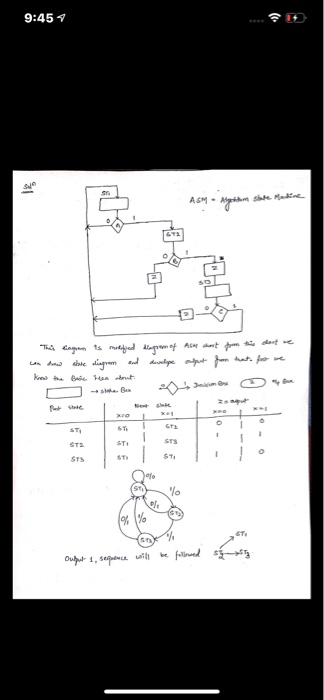 9:45
Solⁿ
ASM - Algorithm State Machine
ST1
0 A 1
ST2
0 B 1
Z
Z
ST3
Z
0 C 1
This diagram is modified diagram of ASM chart from this chart we
can draw state diagram and develope output from that. first we
know the Basic idea about.
→ state Box
0 1 → Decision Box
Z
Box
Next state
Z = output
state
X=0 X=1
X=0 X=1
ST1 ST1 ST2 0 0
ST2 ST1 ST3 1 1
ST3 ST1 ST1 1 0
0/0
ST1
1/0
0/1
ST2
0/1
1/0
ST3
1/1
Output 1, sequence will be followed
ST1
ST2 → ST3